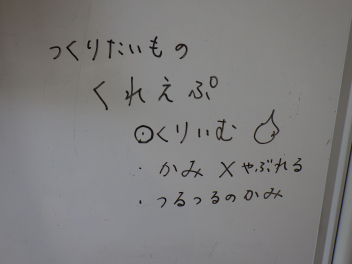 つくりたいもの
くれえぷ
⊙くりいむ
・かみ×やぶれる
・つるつるのかみ